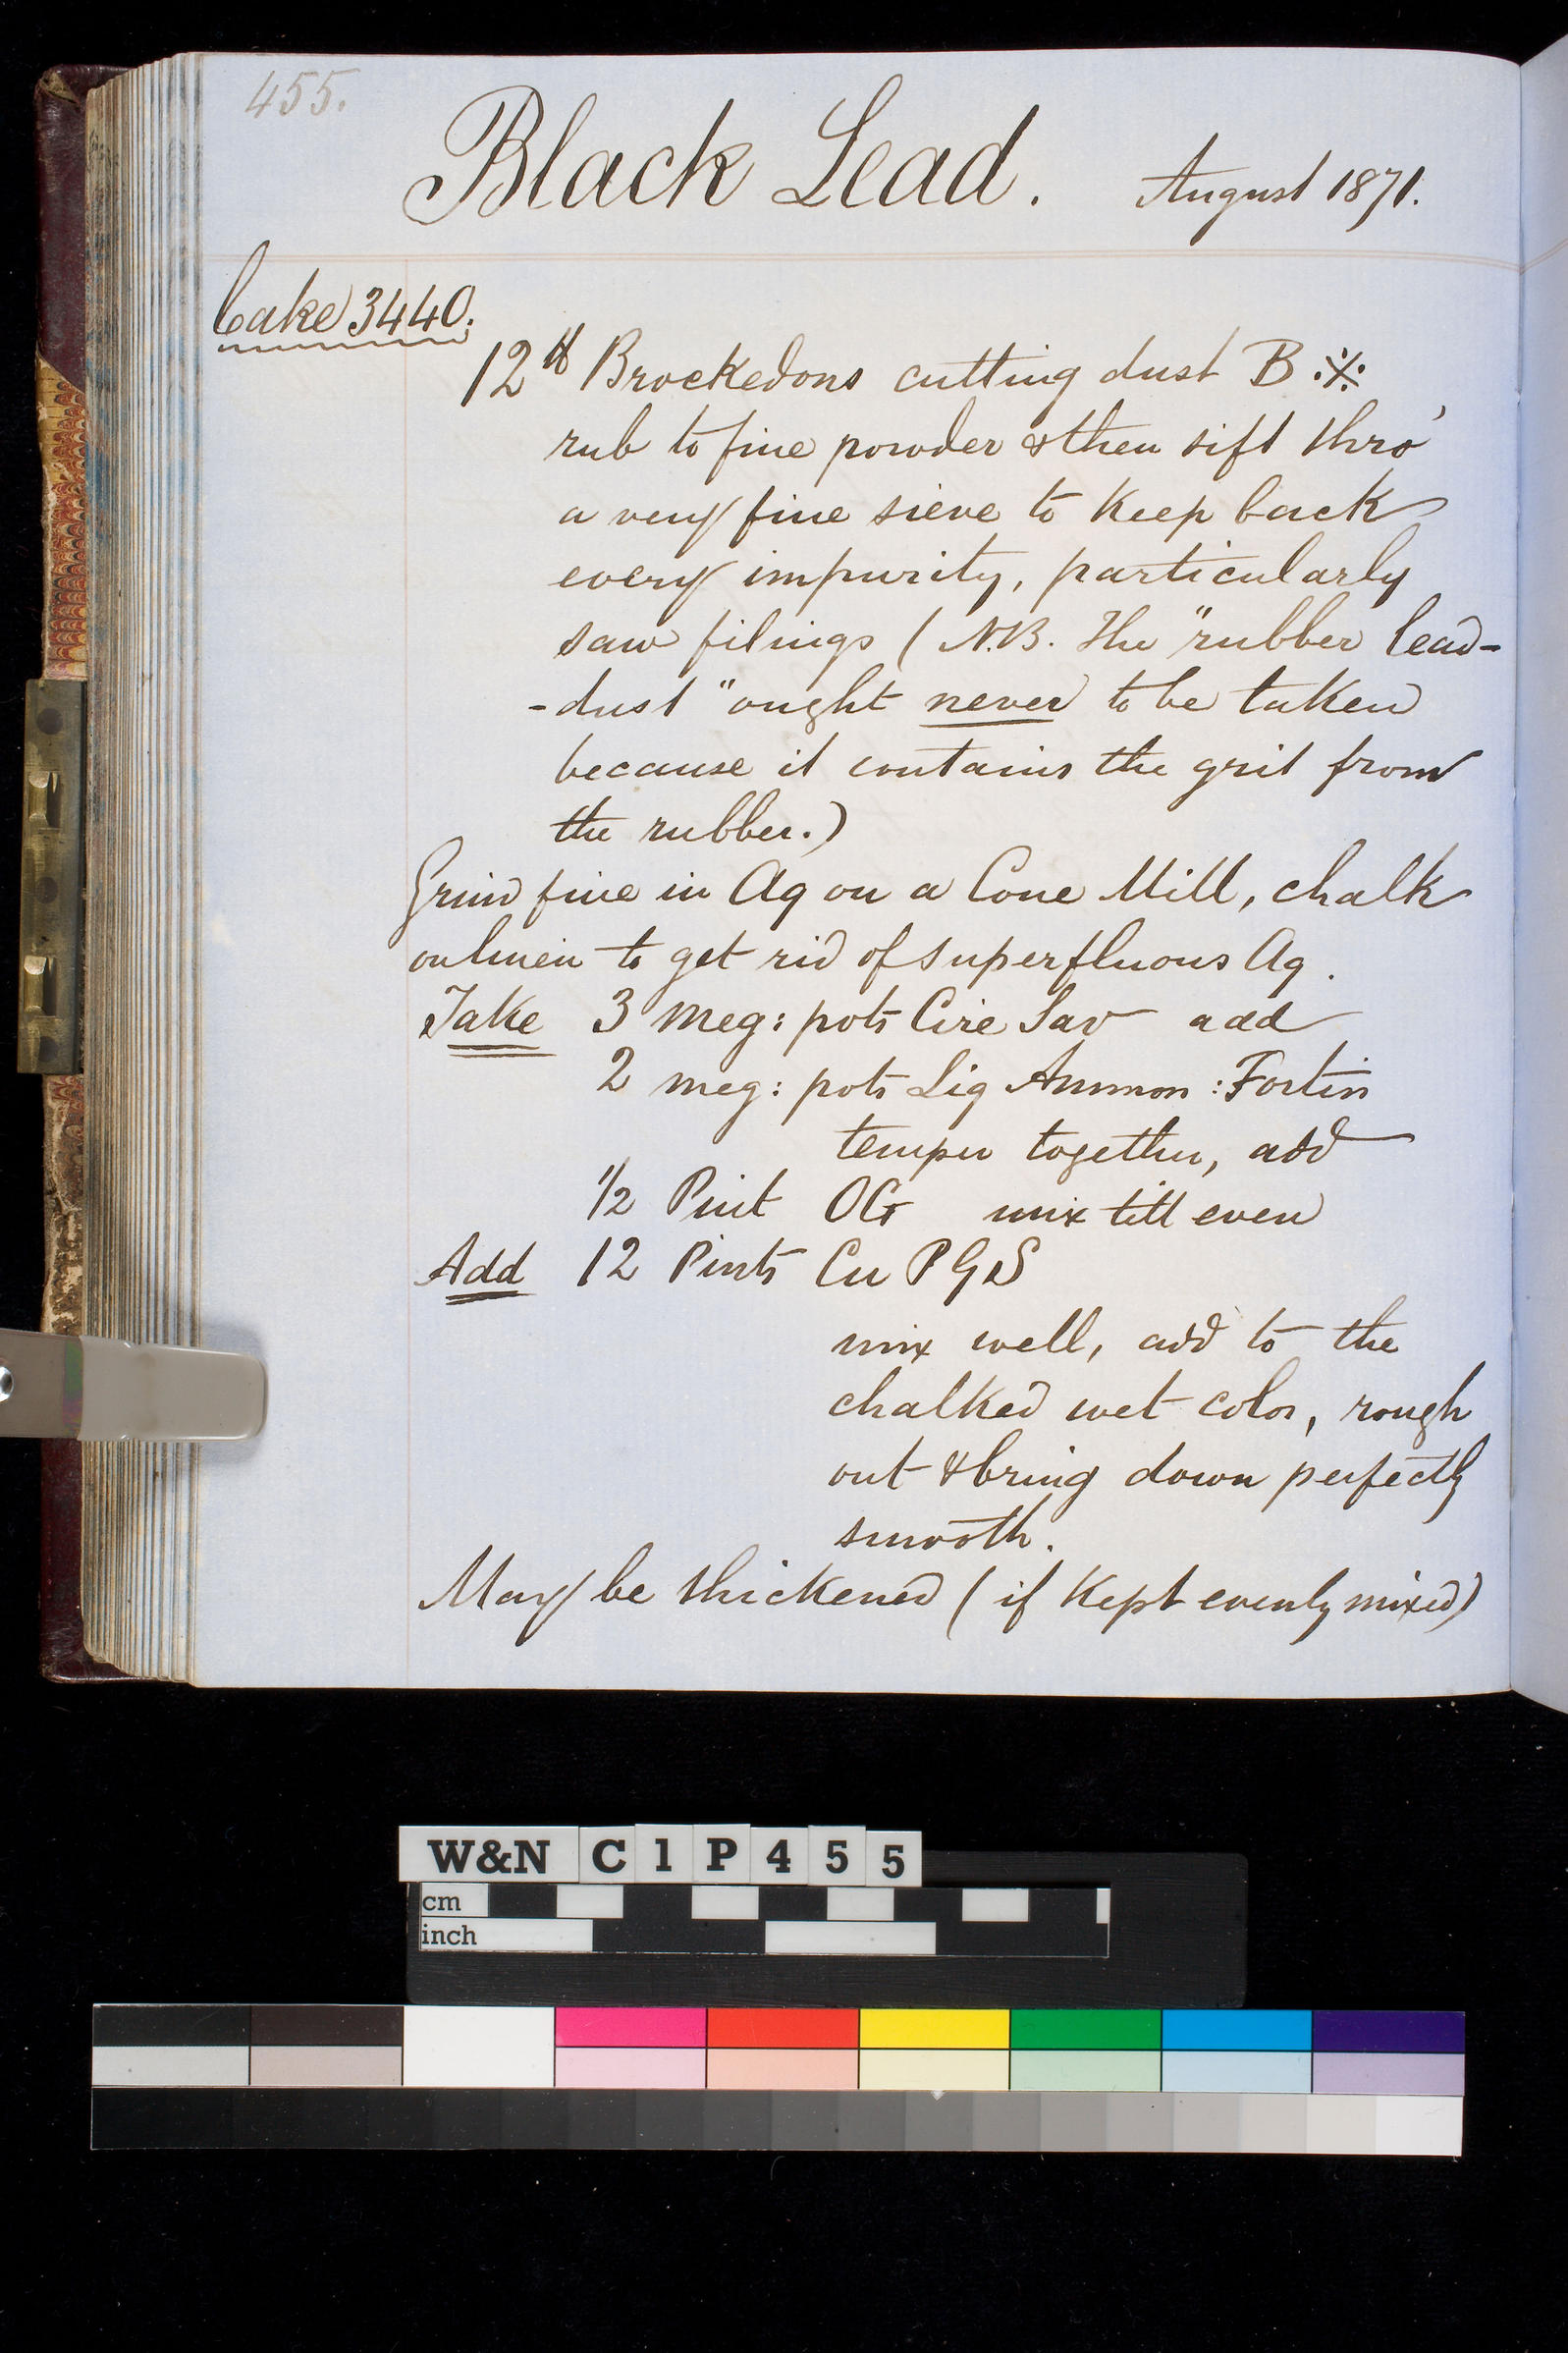 455.
Black Lead. August 1871.
Cake 3440.
12 ℔ Brockedons cutting dust B ※
rub to fine powder & then sift thro'
a very fine sieve to keep back
every impurity, particularly
saw filings ( N.B. The "rubber lead-
-dust" ought never to be taken
because it contains the grit from
the rubber.)
Grind fine in Aq on a Cone Mill, chalk
on linen to get rid of superfluous Aq.
Take 3 meg: pots Cire Sav add
2 meg: pots Liq Ammon: Fortis
temper together, add
1/2 Pint OG mix till even
Add 12 Pints Cu P G S
mix well, add to the
chalked wet color, rough
out & bring down perfectly
smooth.
May be thickened (if kept evenly mixed)
W&N C 1 P 4 5 5
cm
inch